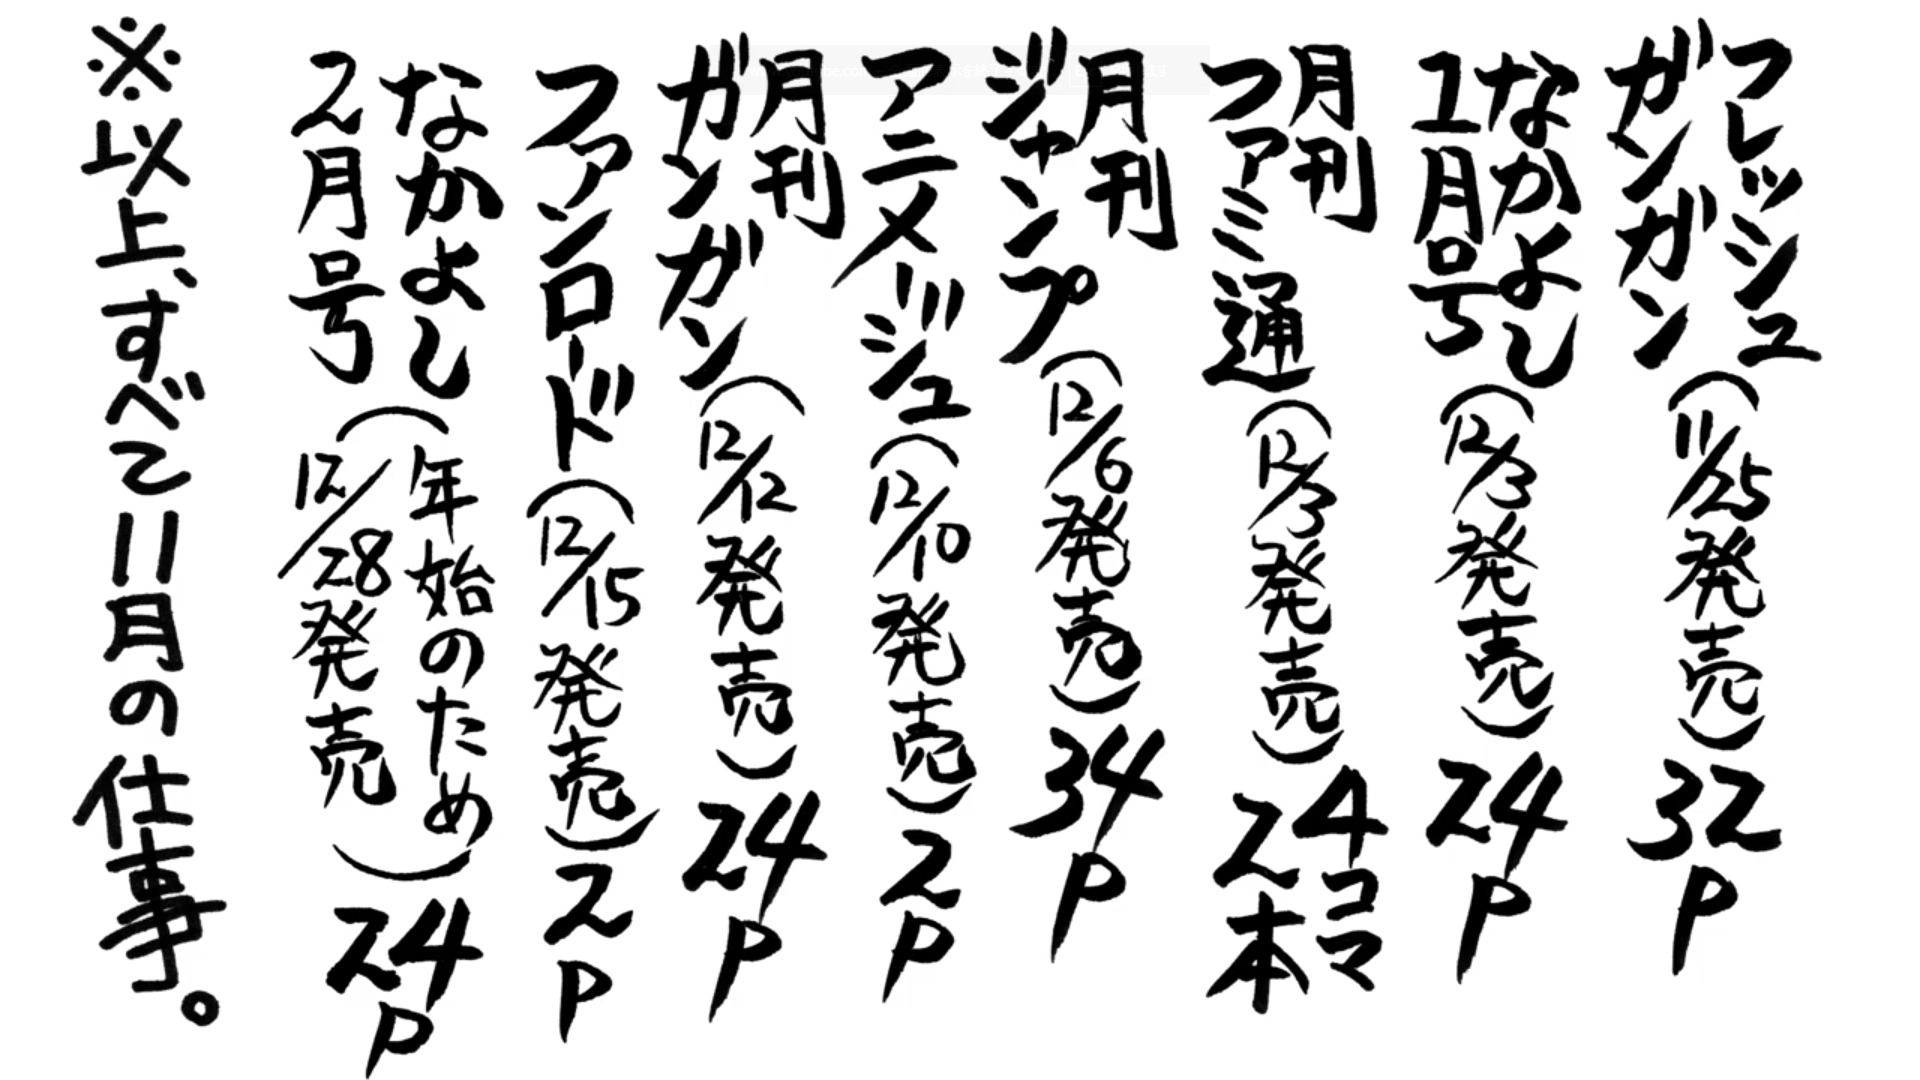 フレッシュガンガン（11/25発売）32P
なかよし1月号（12/3発売）24P
月刊ファミ通（12/3発売）4コマ2本
月刊ジャンプ（12/6発売）34P
アニメージュ（12/10発売）2P
月刊ガンガン（12/12発売）24P
ファンロード（12/15発売）2P
なかよし2月号（年始のため12/28発売）24P
※以上、すべて11月の仕事。